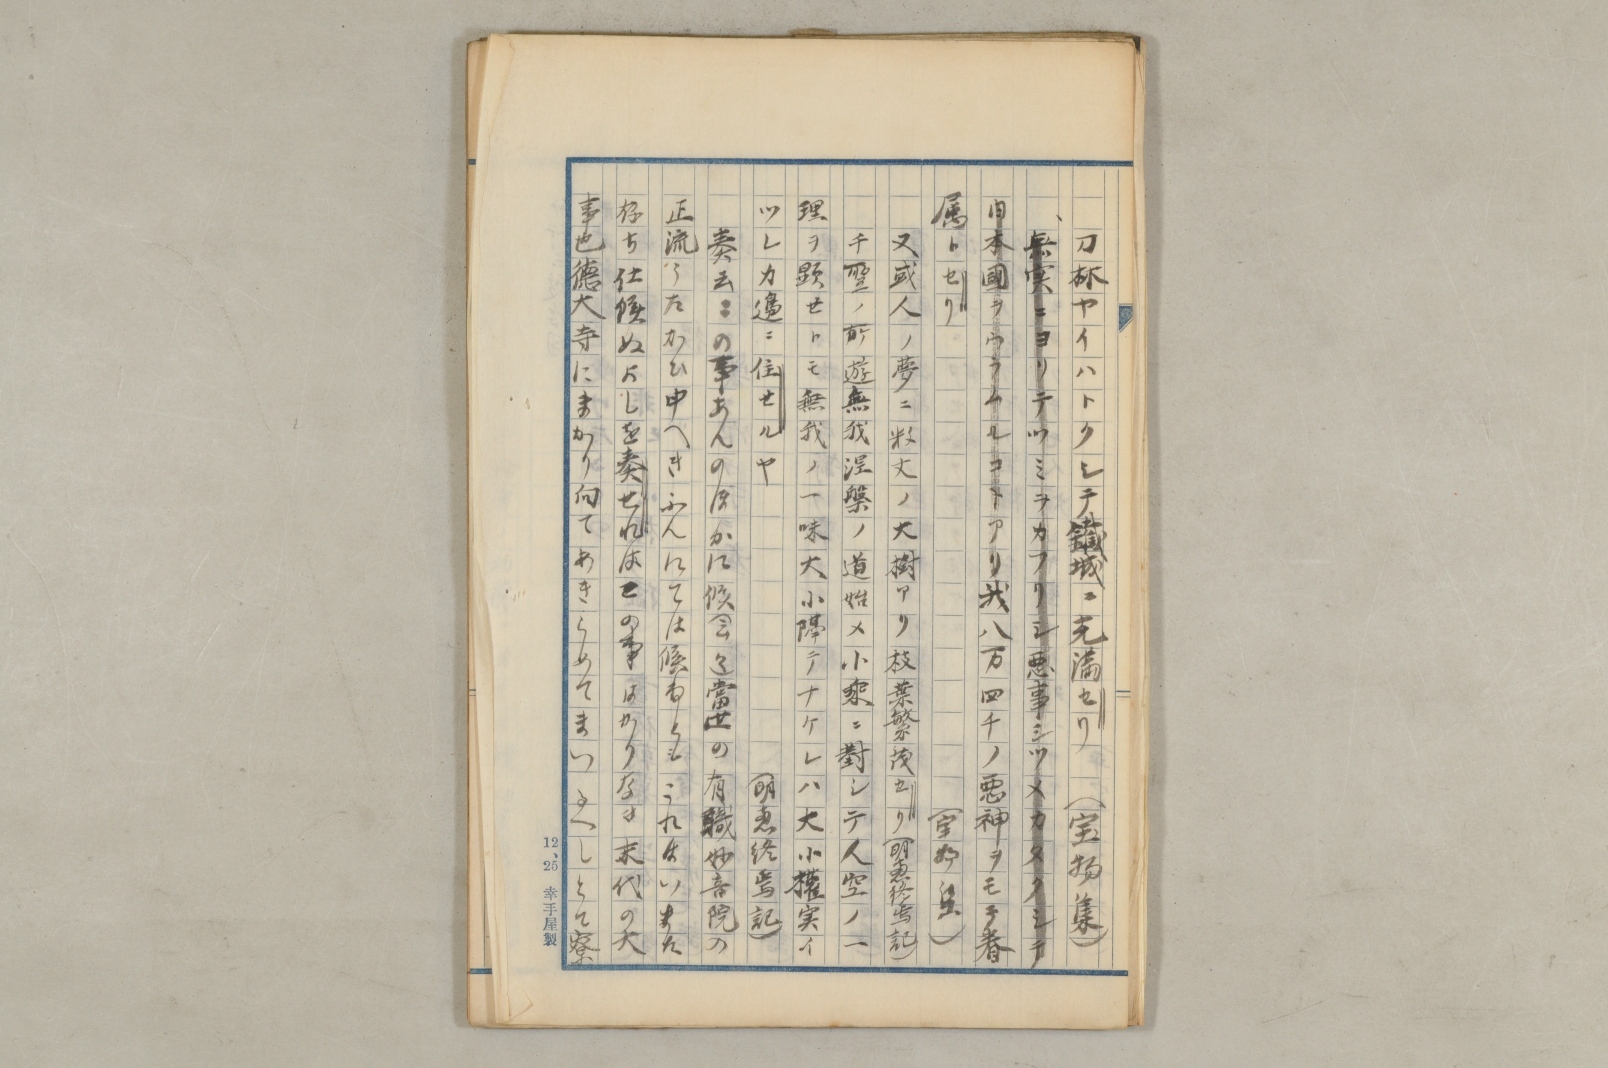 刀林ヤイハトクシテ鐵城ニ充滿セリ (宝物集)
、無実ニヨリテツミヲカフリシ悪事シツメカタクシテ
日本國ヲウラムルコトアリ我八万四千ノ悪神ヲモテ眷
属トセリ (宝物集)
又或人ノ夢ニ数丈ノ大樹アリ枝葉繁茂セリ(明恵終焉記)
千聖ノ所遊無我涅槃ノ道始メ小乘ニ對シテ人空ノ一
理ヲ顕セトモ無我ノ一味大小隔テナケレハ大小權実イ
ツレカ邊ニ住セルヤ (明恵終焉記)
奏云この事あんのほかに候会を當世の有職妙音院の
正流うたかひ申へきふんにては候ねともこれはいまた
存ち仕候ぬよしを奏せれはこの事はかりなは末代の大
事也德大寺にまかり向てあきらめてまいるへしとて寮
12、25 幸手屋製